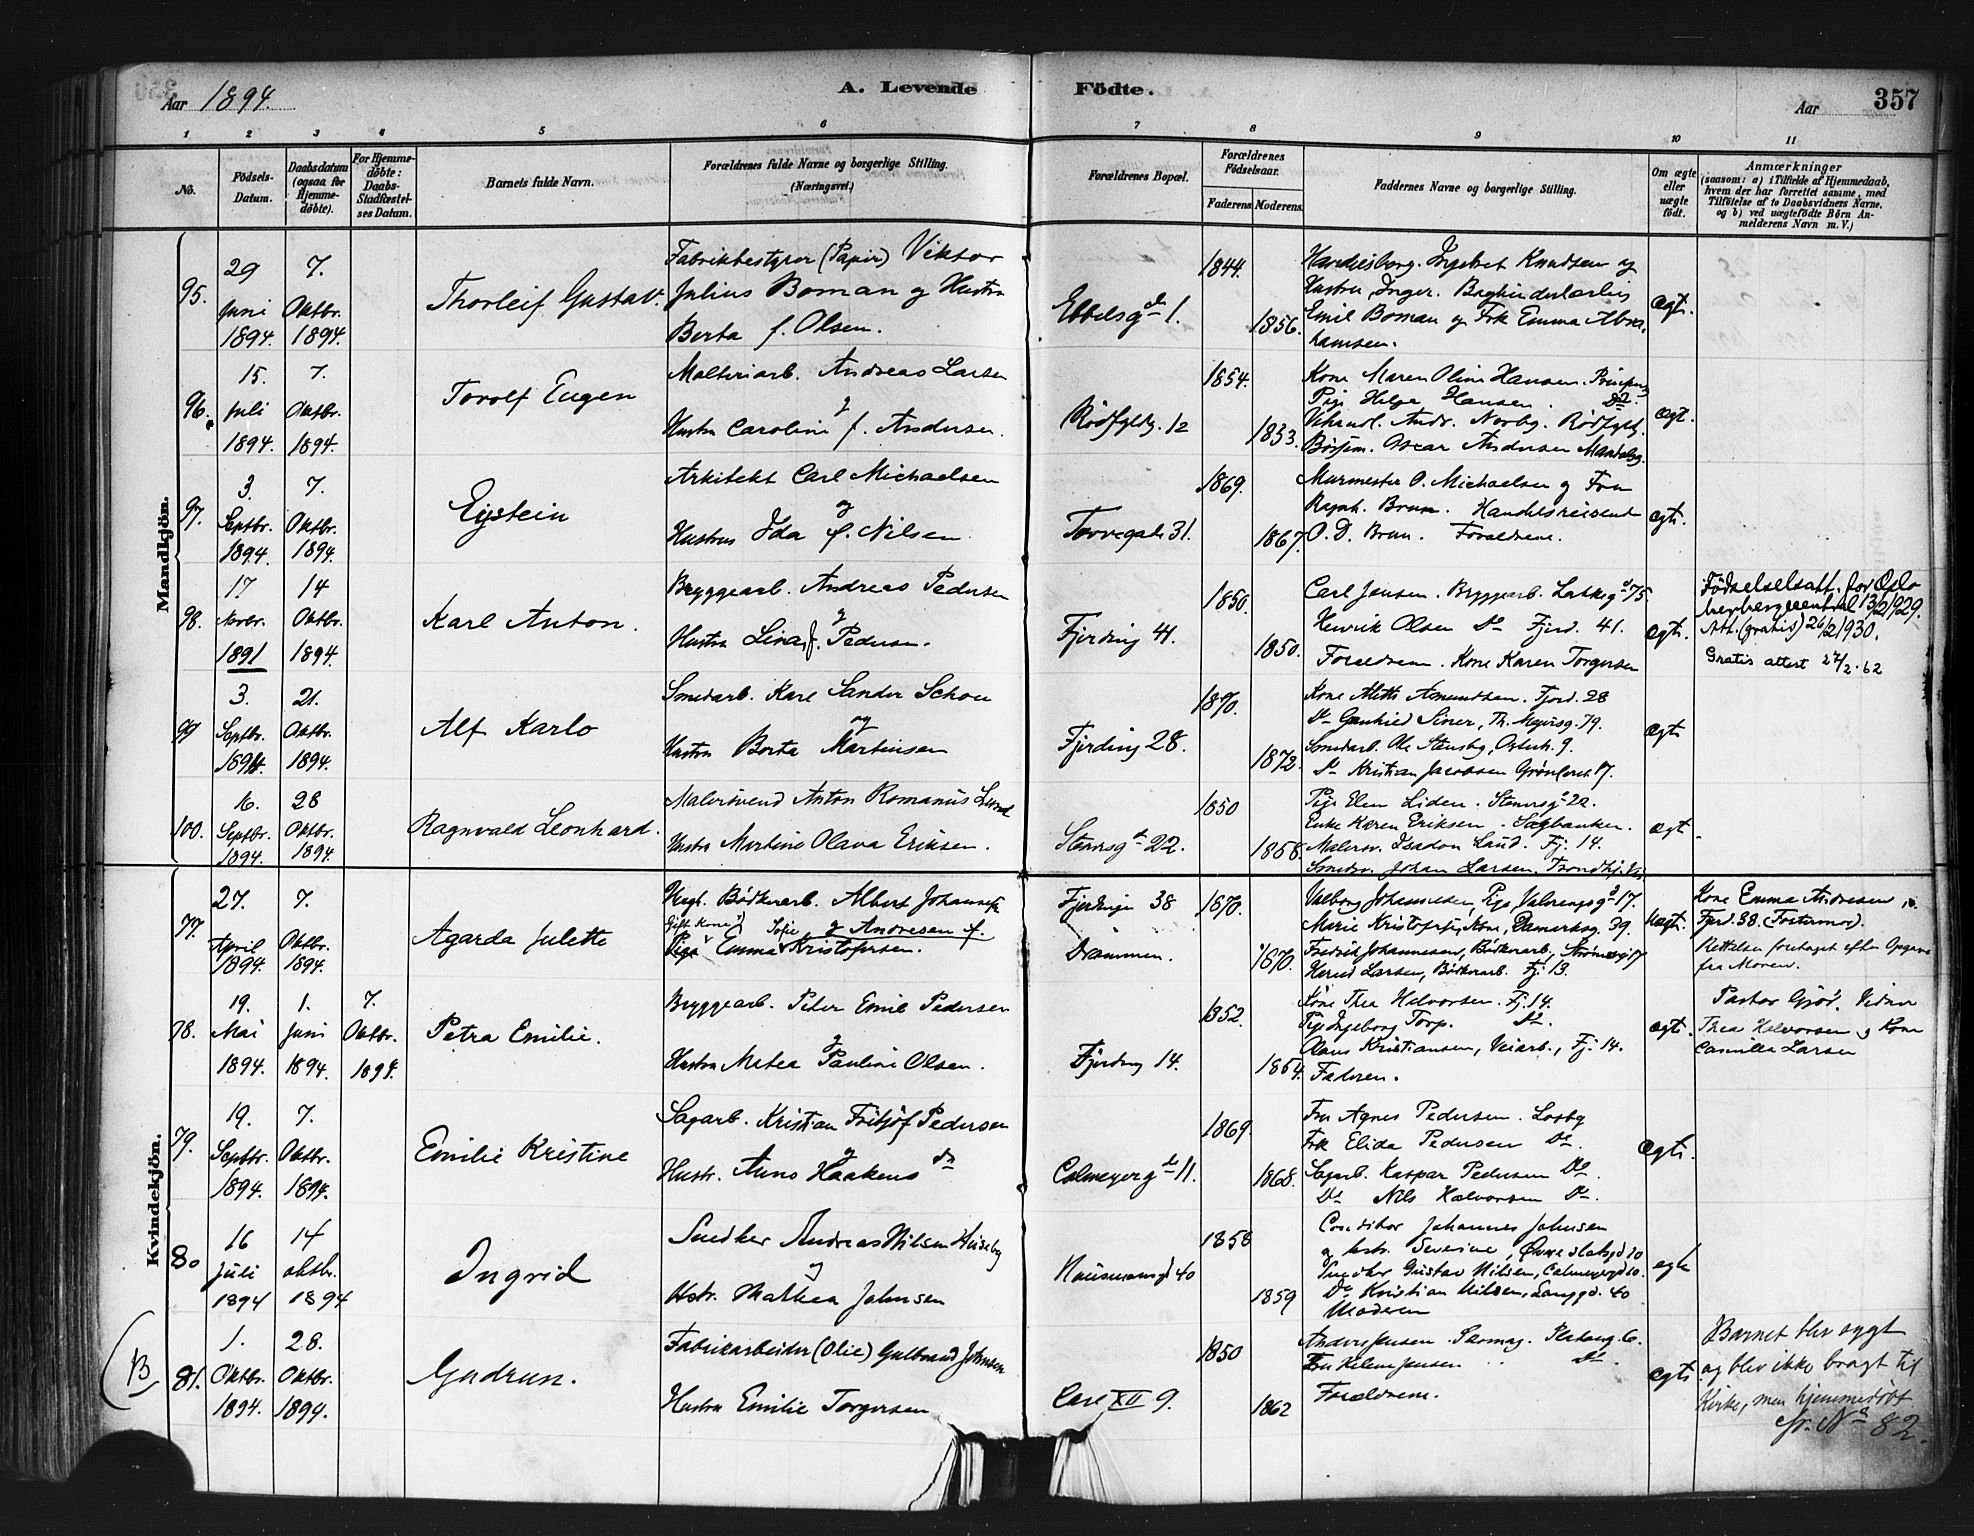 Aar 1894.
A. Levende Födte.
Aar
357
1 2 3 4 5 6 7 8 9 10 11
No.
Födsels-Datum.
Daabsdatum (ogsaa for Hjemme-döbte).
For Hjemme-döbte: Daabs-Stadfæstel-ses Datum.
Barnets fulde Navn.
Forældrenes fulde Navne og borgerlige Stilling. (Næringsvei.)
Forældrenes Bopæl.
Forældrenes Födselsaar.
Faderens. Moderens.
Faddernes Navne og borgerlige Stilling.
Om ægte eller uægte födt.
Anmærkninger
(saasom: a) i Tilfælde af Hjemmedaab, hvem der har forrettet samme, med Tilföielse af to Daabsvidners Navne, og b) ved uægtefödte Börn An-melderens Navn m. V.)
Mandkjön.
95.
29 Juni 1894.
7. Oktbr. 1894.
Thorleif Gustav.
Fabrikbestyrer (Papir) Viktor
Julius Boman og Hustru
Berta f. Olsen.
Ebbelsgde 1.
1844.
1856.
Ingebret Knudsen og
Hustru Inger.
Emil Boman og Frk Emma Abra-
hamsen.
ægt.
96.
15. Juli 1894.
7. Oktbr. 1894.
Torolf Eugen
Malteriarb. Andreas Larsen
og
Hustru Caroline f. Andersen.
Rødfyldg. 12
1854.
1833.
Kone Maren Oline Hansen.
Pige Helga Hansen. Do.
Andr. Norby. Rødfyldg.
Oscar Andersen
ægt.
97.
3. Septbr. 1894.
7. Oktbr. 1894.
Eystein
Arkitekt Carl Michaelsen
og
Hustru Ida f. Nilsen.
Torvegade 31.
1869.
1867.
Murmester O. Michaelsen og Fru
Ragnh. Brun. Handelsreisende
O. D. Brun. Forældrene.
ægte.
98.
17 Novbr. 1891
14 Oktbr. 1894.
Karl Anton.
Bryggearb. Andreas Pedersen
og
Hustru Lina f. Pedersen.
Fjerding 41.
1850.
1850.
Carl Jensen. Bryggearb. Lakkeg. 75.
Henrik Olsen Do Fjerd. 41.
Forældrene. Kone Karen Torgersen
ægte.
Födselselsatt. for Oslo
herbergecentral 13/2 1929.
Att. (gratis) 26/2 1930.
Gratis attest 27/2. 62
99
3. Septbr. 1894.
21. Oktbr. 1894.
Alf Karlo
Smedarb. Karl Sander Schou
og
Hustru Berta Martinsen
Fjerding 28.
1870.
1872.
Kone Mette Amundsen. Fjerd. 28
Th. Meyersg. 79.
Smedarb. Ole Stensby, Osterh. 9.
Do Kristian Jacobsen Grønlands. 17.
ægte
100.
16. Septbr. 1894.
28 Oktbr. 1894
Ragnvald Leonhard.
Malersvend Anton Romanus Lund
Hustru Martine Olava Eriksen.
Stenersgt 22.
1850
1858.
Pige Elen Liden. Stenersg. 22.
Enke Karen Eriksen. Sagbanken.
Malersv. Lund. Fj. 14.
Smedsv. Johan Larsen. Trondhj.
ægt.
Kvindekjön.
77.
27. April 1894.
7. Oktbr. 1894.
Agarda Julette
Ungk. Bödkerarb. Albert Johannesen
Gift Kone Sofie og Andresen f.
Pige Emma Kristofersen.
Fjerdingen 38
Drammen.
1870.
1870.
Valborg Johannesen Pige 17.
Marie Kristofersen, Kone, Danmarksg. 39.
Fredrik Johannesen, Bödkerarb. 17
Larsen, Bödkerarb. Fj. 13.
uægt.
Kone Emma Andresen
Fjerd. 38. (Fostermor).
Rettelsen foretaget efter Opgave
fra Moren.
78.
19. Mai 1894.
1. Juni 1894.
7. Oktbr. 1894.
Petra Emilie.
Bryggearb. Peter Emil Pedersen
og
Hustru Matea Pauline Olsen.
Fjerding 14.
1852.
1854.
Kone Thea Halvorsen. Fj. 14.
Pige Ingeborg Torp. Do.
Olaus Kristiansen, Veiarb., Fj. 14.
Faderen.
ægt.
Thea Halvorsen og Kone
Camilla Larsen
79.
19. Septbr. 1894.
7. Oktbr. 1894.
Emilie Kristine
Sagarb. Kristian Fritjof Pedersen
og
Hustr. Anne Haakens dr
Calmeyergde 11.
1869.
1868.
Fru Agnes Pedersen. Losby
Frk Elida Pedersen Do.
Sagarb. Kaspar Pedersen Do.
Do Nils Halvorsen Do.
ægte.
80
16 Juli 1894
14 oktbr. 1894
Ingrid
Snedker Andreas Nilsen Huseby
og
Hstr. Mathea Johnsen
Hausmannsgd 40
1858
1859
Conditor Johannes Johnsen
og hstr. Severine, Øvre slotsgd 20
Snedker Gustav Nilsen, Calmeyergd 10.
Do Kristian Nilsen, Langgd. 40
Moderen
egte
(B)
81.
1. Oktbr. 1894.
28. Oktbr. 1894.
Gudrun.
Fabrikarbeider (Olie) Gulbrand Johnsen
Hustru Emilie Torgersen
Carl XII 9.
1850
1862
Anders Jensen. Platoug. 6.
Fru Helene Jensen Do.
Forældrene.
ægte.
Barnet blev sygt
og blev ikke bragt til
Kirke, men hjemmedøbt
cfr. No 82.